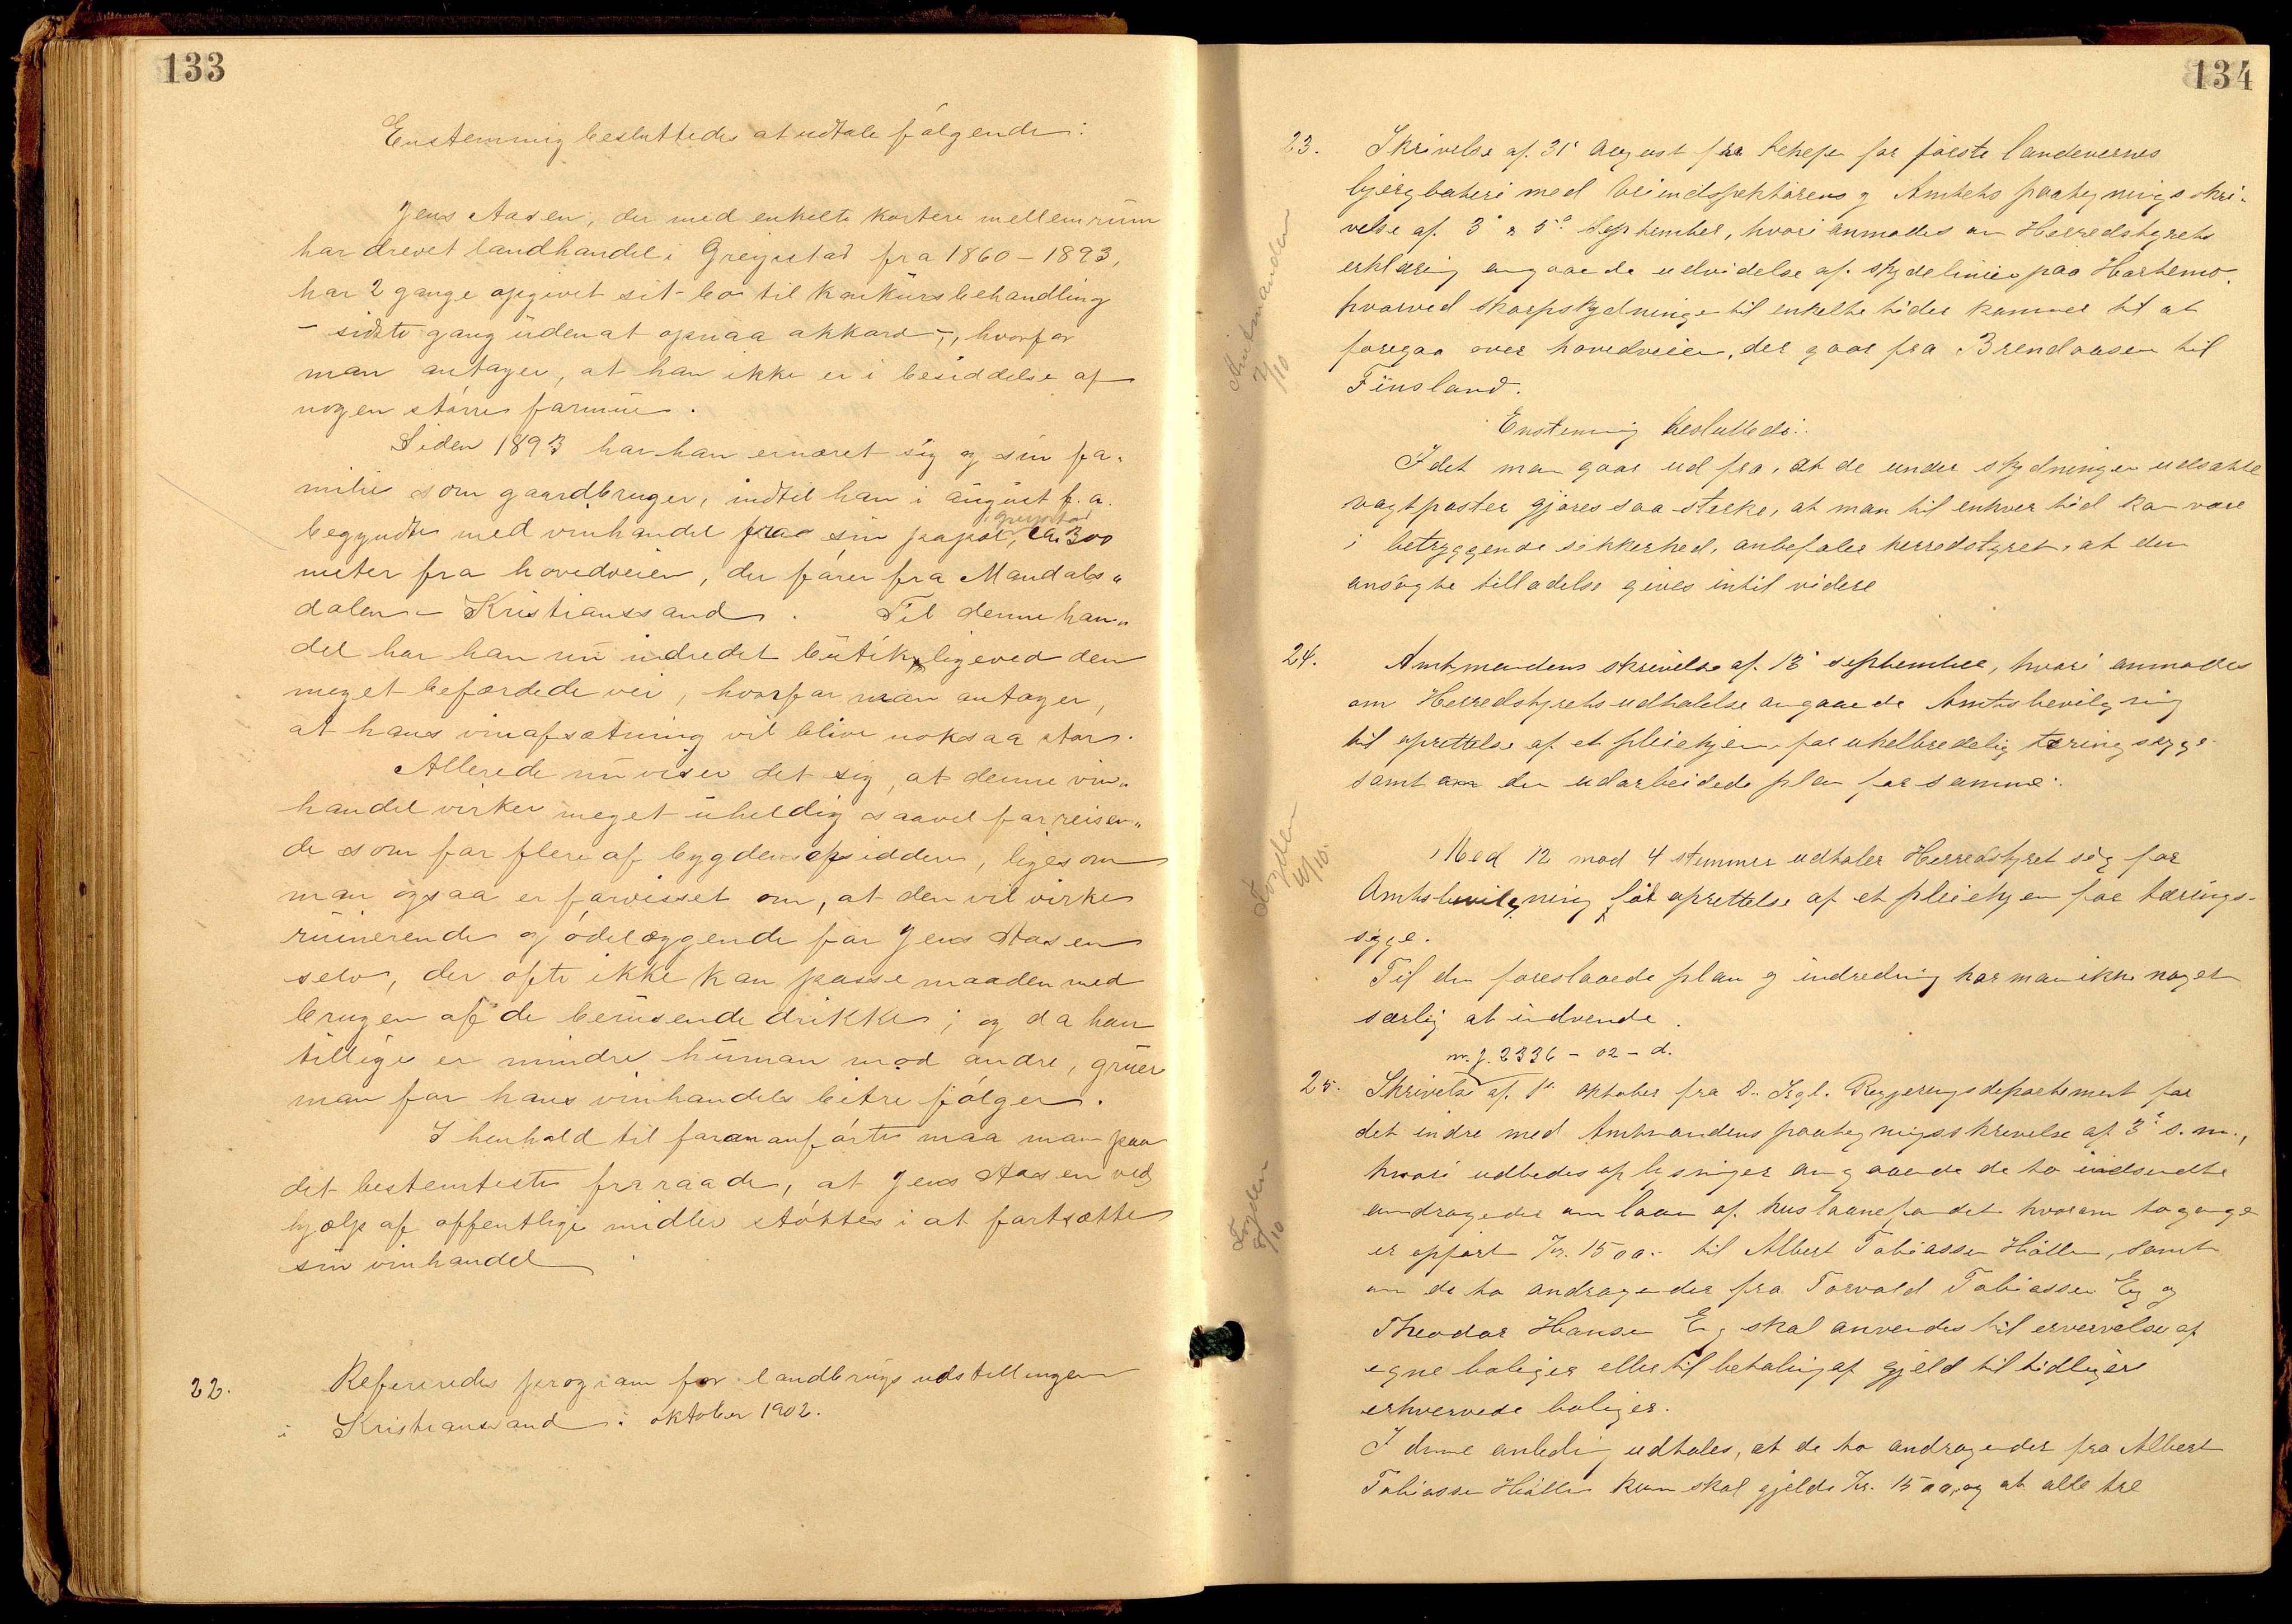 133
Enstemmig besluttedes at udtale følgende:
Jens Aasen, der med enkelte kortere mellemrum
har drevet landhandel i Greipstad fra 1860-1893,
har 2 gange opgivet sit bo til konkursbehandling
- sidste gang uden at opnaa akkord -, hvorfor
man antager, at han ikke er i besiddelse af
nogen større formue.
Siden 1893 har han ernæret sig og sin fa-
milie som gaardbruger, indtil han i august f. a.
i Greipstad
begyndte med vinhandel fra sin ca. 300
meter fra hovedveien, der fører fra Mandals"
dalen - Kristianssand. Til denne han"
del har han nu indredet butik ligeved den
meget befærdede vei, hvorfor man antager,
at hans vinafsætning vil blive noksaa stor.
Allerede nu viser det sig, at denne vin"
handel virker meget uheldig saavel for reisen"
de som for flere af bygdens opsiddere, ligesom
man ogsaa er forvisset om, at den vil virke
ruinerende og ødelæggende for Jens Aasen
selv, der ofte ikke kan passe maaden med
brugen af de berusende drikke; og da han
tillige er mindre human mod andre, gruer
man for hans vinhandels bitre følger.
I henhold til forananførte maa man paa
det bestemteste fraraade, at Jens Aasen ved
hjælp af offentlige midler støttes i at fortsætte
sin vinhandel
22. Refereredes program for landbrugsudstillingen
i Kristianssand i oktober 1902.
134
23. Skrivelse af 31' August fra for første landeværns
bjergbateri med veiindspektørens og Amtets paategningsskri-
velse af 3' & 5' September, hvori anmodes om Herredstyrets
erklæring angaaende udvidelse af skydelinien paa Hortemo,
hvorved skarpskydninge til enkelte tider kommer til at
foregaa over hovedveien, der gaar fra Brendaasen til
Finsland.
Amtmanden
7/10
Enstemmig besluttedes:
Idet man gaar ud fra, at de under skydningen udsatte
vagtposter gjøres saa sterke, at man til enhver tid kan være
i betryggende sikkerhed, anbefaler herredstyret, at den
ansøgte tilladelse gives intil videre
24. Amtmandens skrivelse af 13' september, hvori anmodes
om Herredstyrets udtalelse angaaende Amtsbevilgning
til oprettelse af et pleiehjem for uhelbredelig tæringssyge
samt om den udarbeidede plan for samme.
Fogden
10/10.
Med 12 mod 4 stemmer udtaler Herredstyret sig for
Amtsbevilgning til oprettelse af et pleiehjem for tærings-
syge.
Til den foreslaaede plan og indredning har man ikke noget
særlig at indvende.
nr. J. 2336 - 02 - d.
25. Skrivelse af 1' oktober fra D. Kgl. Regjeringsdepartement for
det indre med Amtmandens paategningsskrivelse af 3' s. m.,
hvori udbedes oplysninger angaaende de to indsendte
andragender om laan af huslaanefondet hvorom to gange
er opført Kr. 1500.- til Albert Tobiassen Hølle, samt
om de to andragender fra Torvald Tobiassen Eg og
Theodor Hansen Eg skal anvendes til ervervelse af
egne boliger eller til betaling af gjeld til tidligere
erhvervede boliger.
Fogden
8/10
I denne anledning udtales, at de to andragender fra Albert
Tobiassen Hølle kun skal gjelde Kr. 1500, og at alle tre